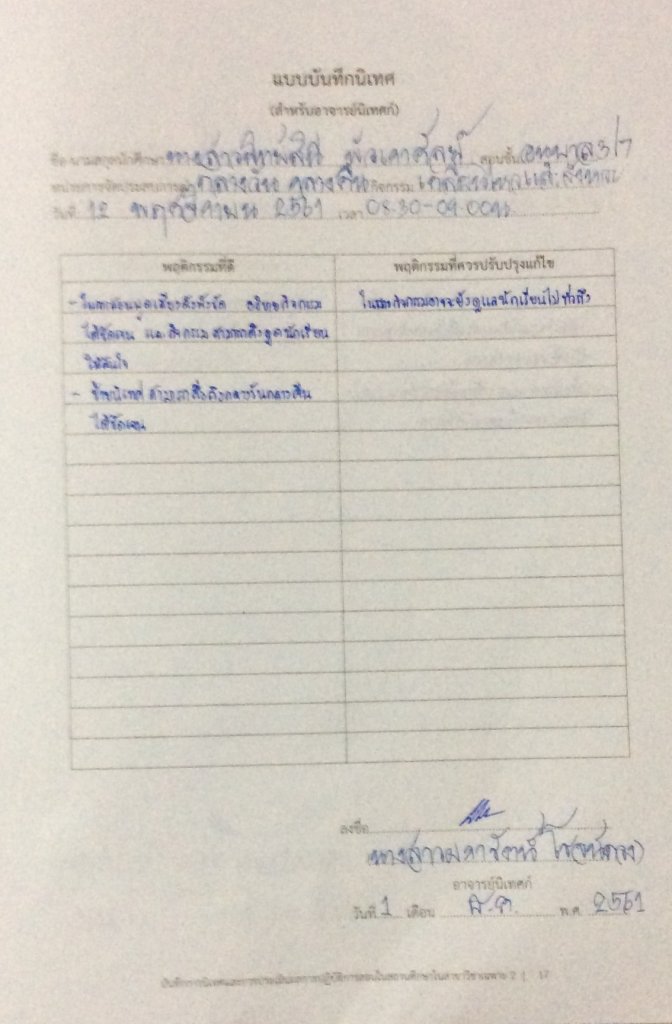 แบบบันทึกนิเทศ
(สำหรับอาจารย์นิเทศก์)
ชื่อ-นามสกุลนักศึกษา นางสาว สอนชั้น อนุบาล 3/7
หน่วยการจัดประสบการณ์ กลางวัน กลางคืน กิจกรรม เคลื่อนไหวและจังหวะ
วันที่ 12 พฤศจิกายน 2561 เวลา 08.30-09.00น
พฤติกรรมที่ดี พฤติกรรมที่ควรปรับปรุงแก้ไข
- ในการสอนพูดเสียงดังฟังชัด อธิบายกิจกรรม
ได้ชัดเจน และกิจกรรมสามารถดึงดูดนักเรียน
ให้สนใจ
- สามารถสื่อถึงกลางวันกลางคืน
ได้ชัดเจน
ในกิจกรรมอาจจะยังดูแลนักเรียนไม่ทั่วถึง
ลงชื่อ
นางสาว
อาจารย์นิเทศก์
วันที่ 1 เดือน ธ.ค. พ.ศ. 2561
บันทึกการนิเทศและการประเมินผลการปฏิบัติการสอนในสถานศึกษาในสาขาวิชาเฉพาะ 2 | 17